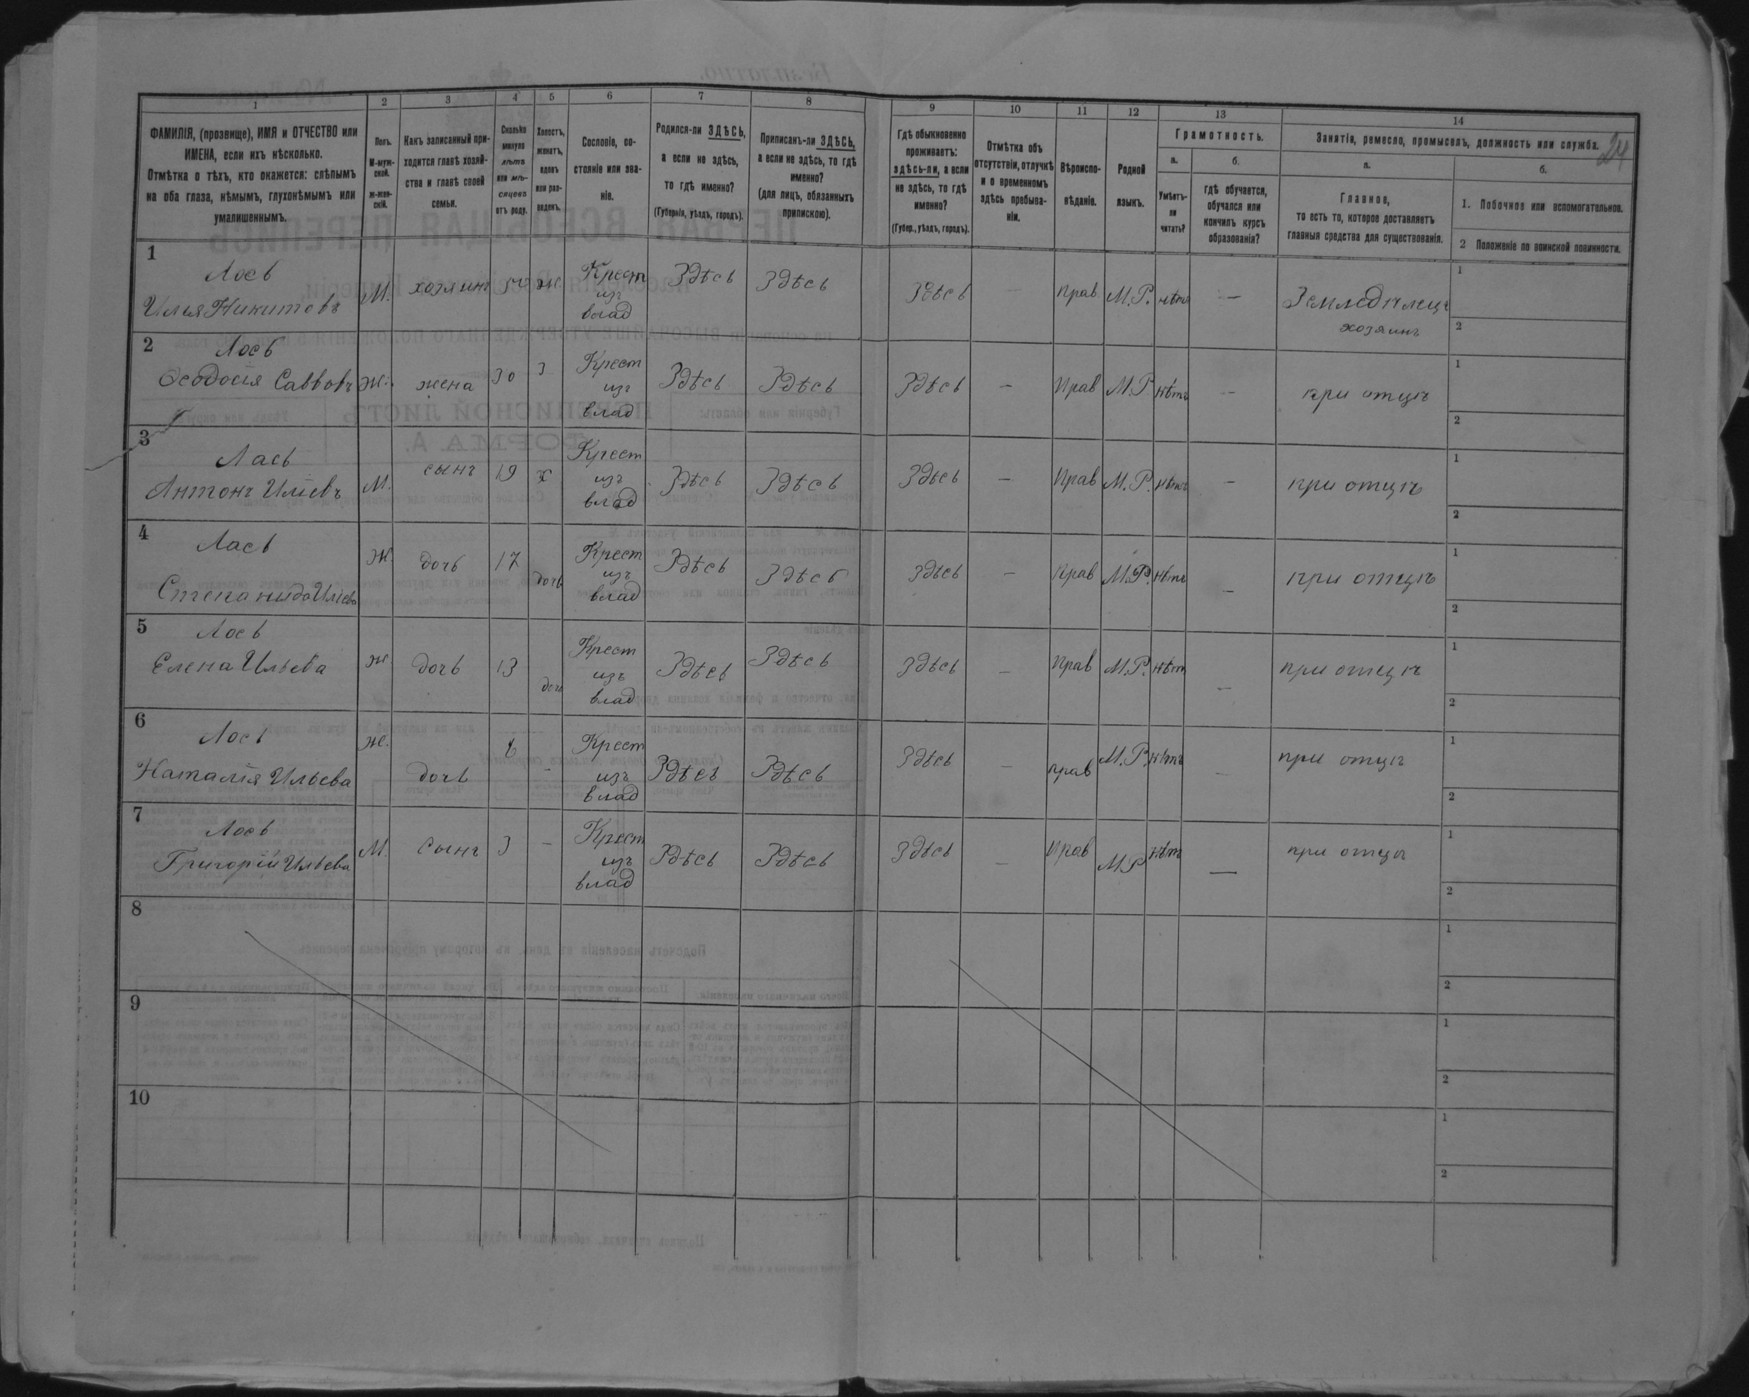 1 2 3 4 5 6 7 8 9 10 11 12 13 14
ФАМИЛІЯ, (прозвище), ИМЯ и ОТЧЕСТВО или
ИМЕНА, если ихъ нѣсколько.
Отмѣтка о тѣхъ, кто окажется: слѣпымъ
на оба глаза, нѣмымъ, глухонѣмымъ или
умалишеннымъ.
Полъ.
М-муж-
ской.
ж-жен-
скій.
Какъ записанный при-
ходится главѣ хозяй-
ства и главѣ своей
семьи.
Сколько
минуло
лѣтъ
или мѣ-
сяцевъ
отъ роду.
Холостъ,
женатъ,
вдовъ
или раз-
веденъ.
Сословіе, со-
стояніе или зва-
ніе.
Родился-ли ЗДѢСЬ,
а если не здѣсь,
то гдѣ именно?
(Губернія, уѣздъ, городъ).
Приписанъ-ли ЗДѢСЬ,
а если не здѣсь, то гдѣ
именно?
(для лицъ, обязанныхъ
припискою).
Гдѣ обыкновенно
проживаетъ:
здѣсь-ли, а если
не здѣсь, то гдѣ
именно?
(Губер., уѣздъ, городъ).
Отмѣтка объ
отсутствіи, отлучкѣ
и о временномъ
здѣсь пребыва-
ніи.
Вѣроиспо-
вѣданіе.
Родной
языкъ.
Грамотность.
а.
Умѣетъ-
ли
читать?
б.
гдѣ обучается,
обучался или
кончилъ курсъ
образованія?
Занятія, ремесло, промыселъ, должность или служба.
24
а.
Главное,
то есть то, которое доставляетъ
главныя средства для существованія.
б.
1. Побочное или вспомогательное.
2 Положеніе по воинской повинности.
1
Лось
Илья Никитовъ М. хозяинъ ж Крест Здѣсь Здѣсь Здѣсь — Прав М.Р. нѣтъ — Земледѣлецъ 1
изъ
влад
хозяинъ 2
2
Лось
Ѳеодосія Саввовъ Ж. жена 30 З Крест Здѣсь Здѣсь Здѣсь — Прав М.Р. нѣтъ — при отцѣ 1
изъ
влад
2
3
Лась
Антонъ Иліевъ М. сынъ 19 х Крест Здѣсь Здѣсь Здѣсь — Прав М.Р. нѣтъ — при отцѣ 1
изъ
влад
2
4
Лась
Степанида Иліева Ж. дочь 17 дочь Крест Здѣсь Здѣсь Здѣсь — Прав М.Р. нѣтъ — при отцѣ 1
изъ
влад
2
5
Лось
Елена Ильева Ж дочь 13 доч Крест Здѣсь Здѣсь Здѣсь Прав М.Р. нѣтъ — при отцѣ 1
изъ
влад
2
6
Лось
Наталія Ильева Ж. дочь — Крест Здѣсь Здѣсь Здѣсь — прав М.Р. нѣтъ — при отцѣ 1
изъ
влад
2
7
Лось
Григорій Ильева М сынъ 3 — Крест Здѣсь Здѣсь Здѣсь — Прав М.Р нѣтъ — при отцѣ 1
изъ
влад
2
8
1
2
9
1
2
10
1
2